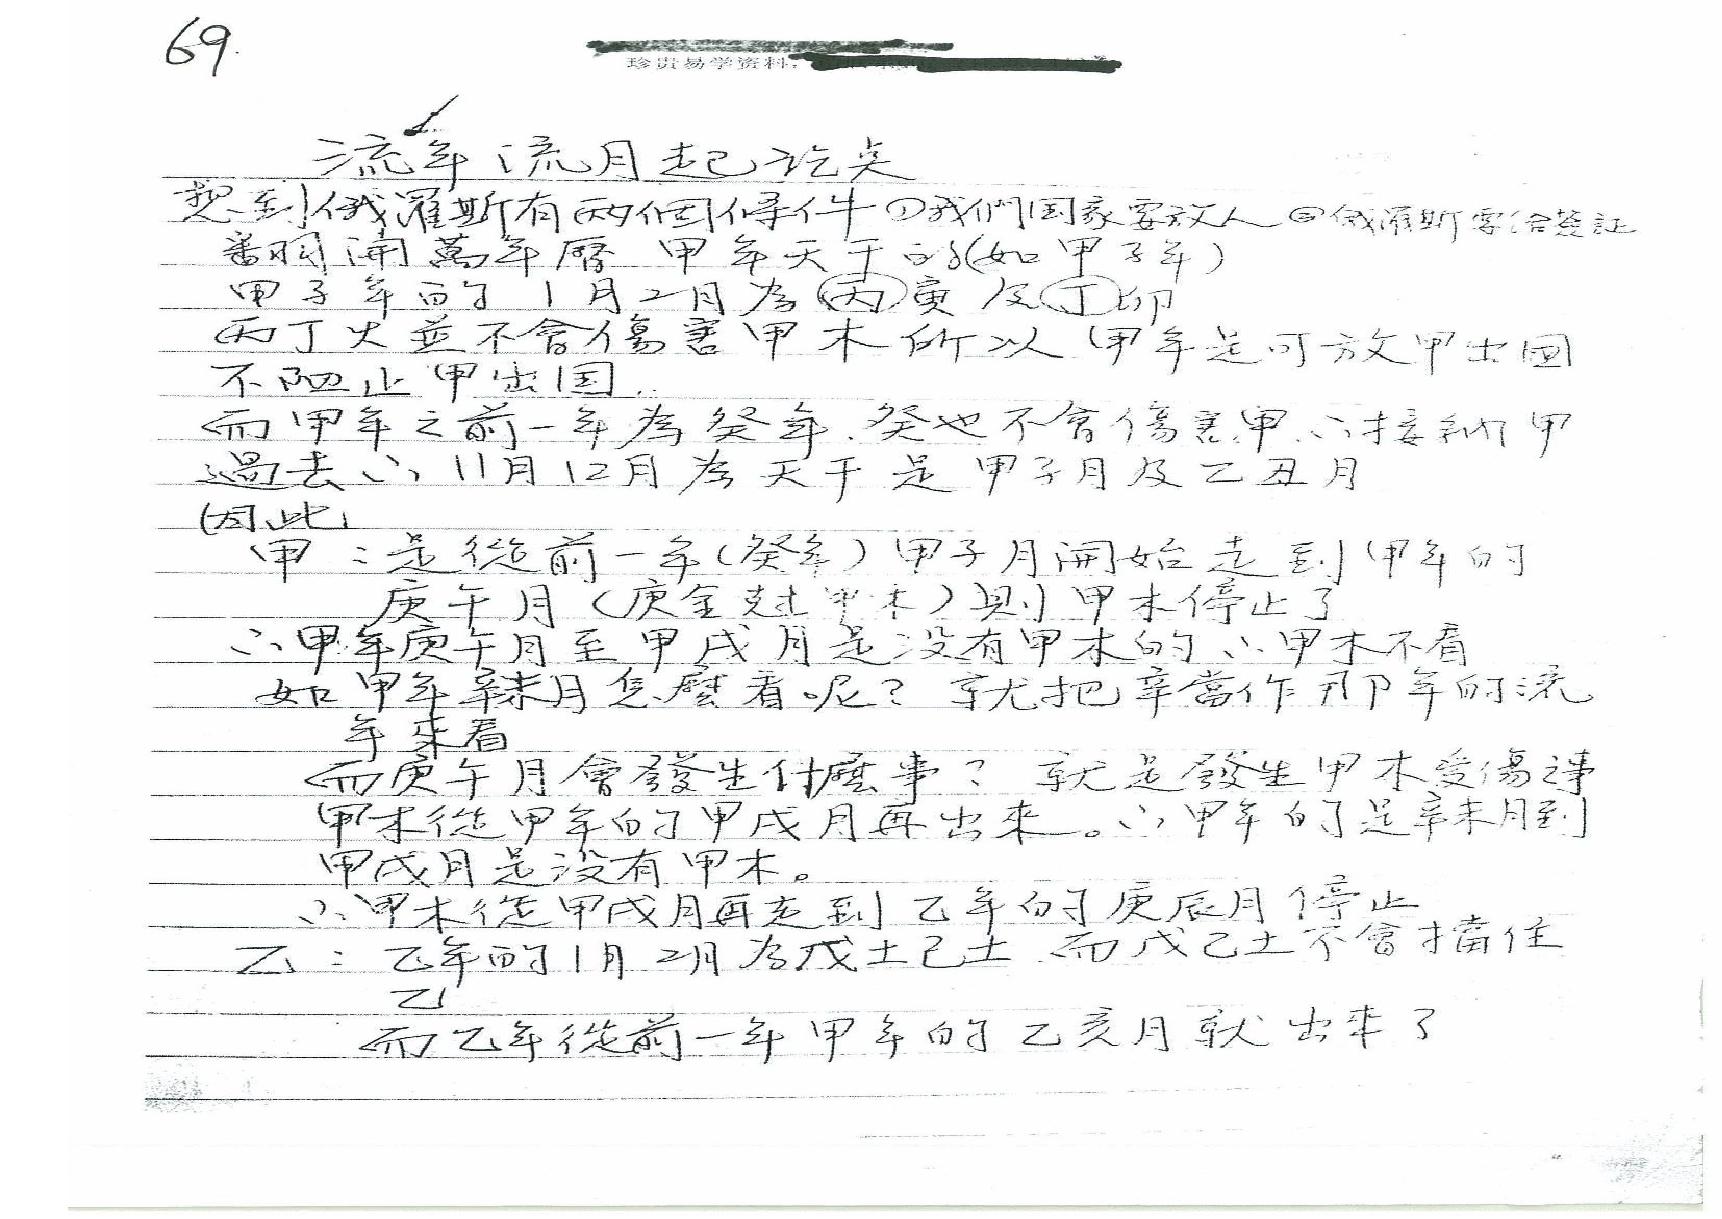 69.
珍贵易学资料:
流年流月起訖点
想到俄羅斯有兩個條件①我們国家要放人②俄羅斯要给簽証
番羽開萬年曆 甲年天干的(如甲子年)
甲子年的1月2月為丙寅及丁卯
丙丁火並不會傷害甲木所以甲年是可放甲出国
不阻止甲出国.
而甲年之前一年為癸年、癸也不會傷害甲∴接納甲
過去∴11月12月為天干是甲子月及乙丑月
因此
甲:是從前一年(癸年)甲子月開始走到甲年的
庚午月(庚金克甲木)則甲木停止了
∴甲年庚午月至甲戌月是没有甲木的∴甲木不看
如甲年辛未月怎麼看呢?就把辛當作那年的流
年來看
而庚午月會發生什麼事?就是發生甲木受傷之事
甲木從甲年的甲戌月再出來。∴甲年的是辛未月到
甲戌月是没有甲木。
∴甲木從甲戌月再走到乙年的庚辰月停止
乙:乙年的1月2月為戊土己土 而戊己土不會擋住
乙
而乙年從前一年甲年的乙亥月就出來了